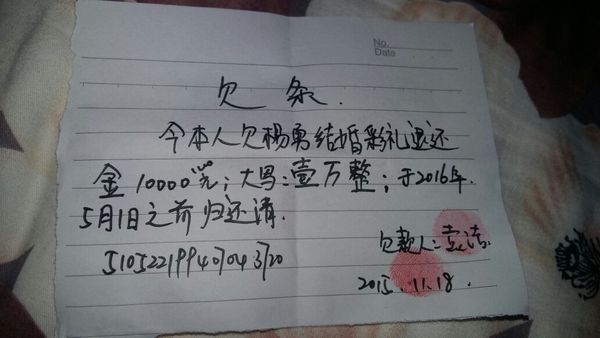 No.
Date
欠条.
今本人欠杨勇结婚彩礼退还
金10000元;大写:壹万整;于2016年.
5月1日之前归还清.
欠款人:
510522199407043720
2015.11.18.